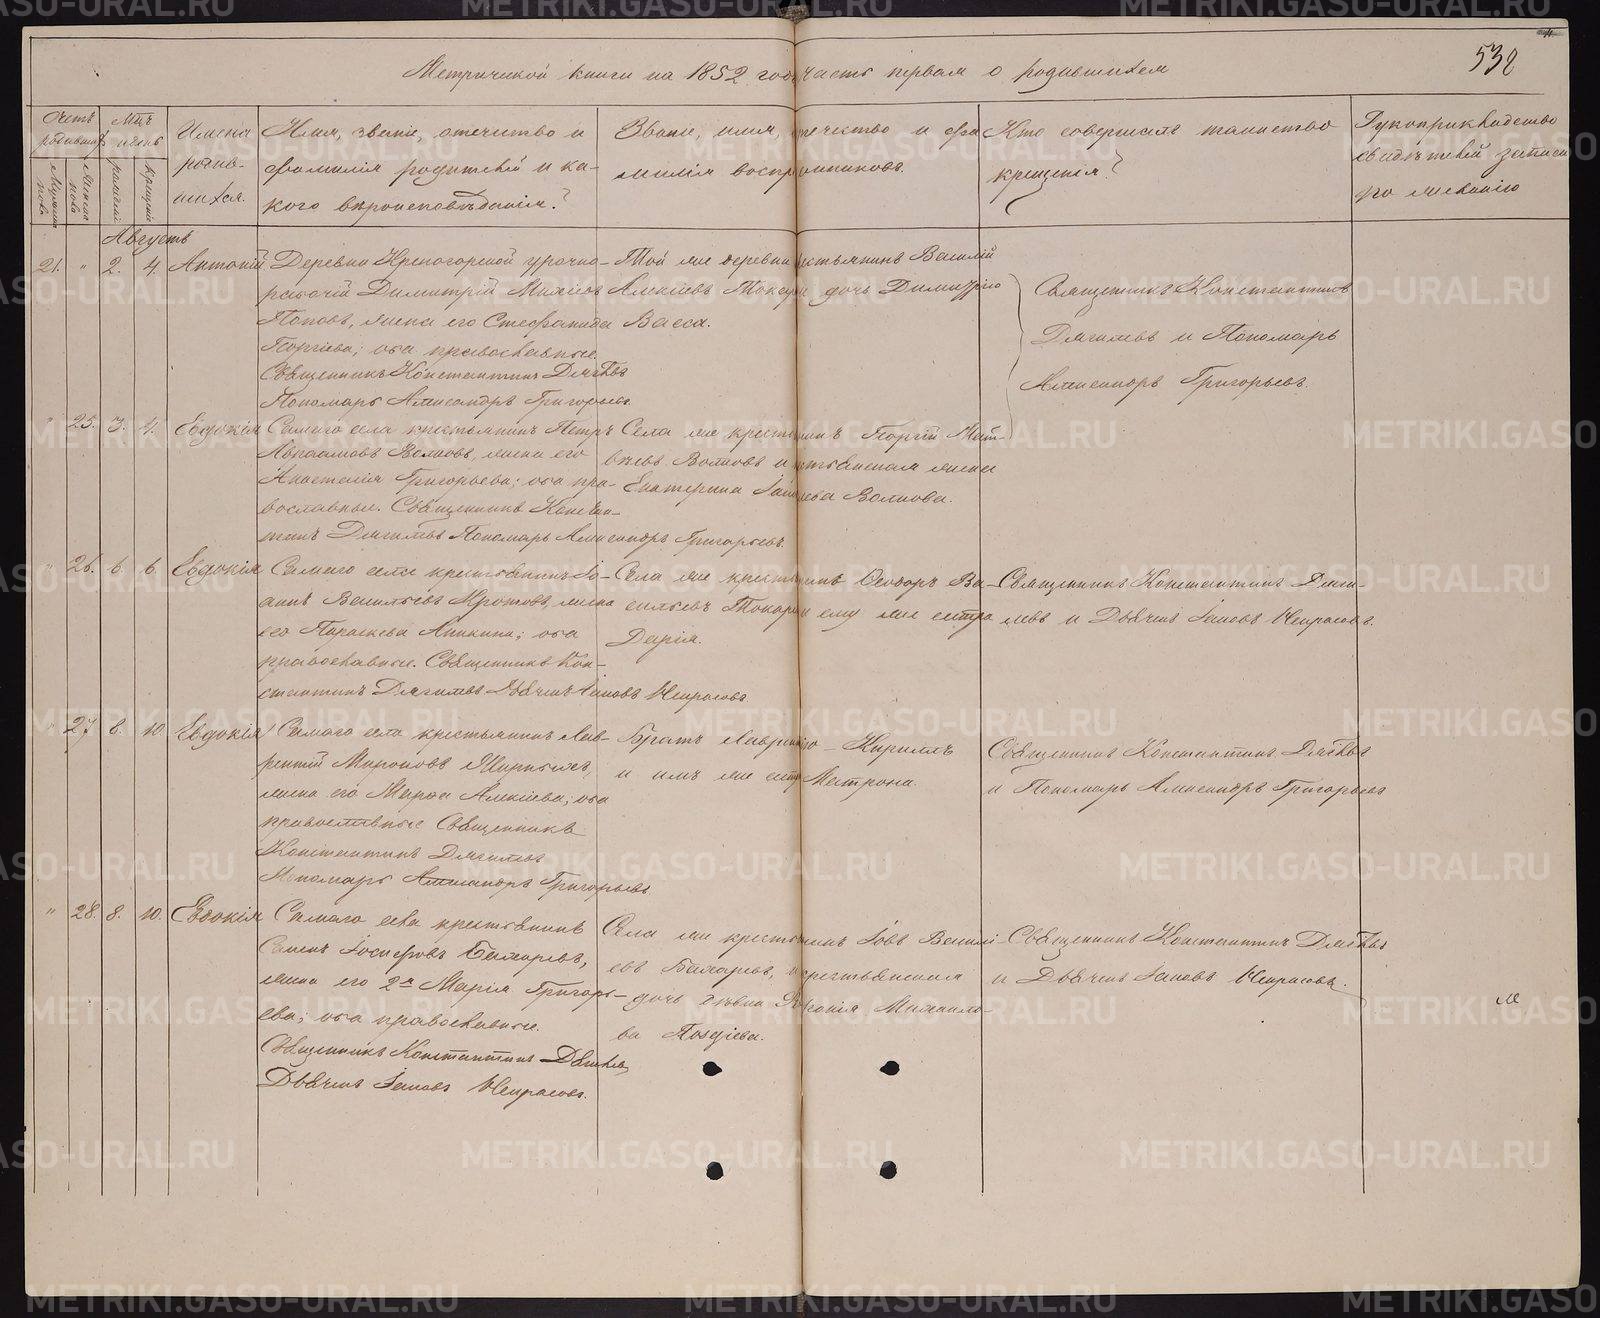 532
Метрической книги на 1852 годъ часть первая о родившихся
Счетъ родившихся
Мѣсяцъ и день
Имена родив-
шихся.
Имя, званіе, отечество и
фамилія родителей и ка-
кого вѣроисповѣданія?
Званіе, имя, отечество и фа-
милія воспріемниковъ.
Кто совершалъ таинство
крещенія?
Рукоприкладство
свидѣтелей записи
по желанію
Мужеска пола
Женска пола
рожденія
крещенія
Августъ
21. " 2. 4. Антоній
Деревни урочно-
Димитрій
Поповъ, жена его Стефанида
Георгіева; оба православные.
Священникъ Константинъ Дягилевъ
Пономарь Александръ Григорьевъ
Той же деревни крестьянинъ Василій
Алексіевъ Токарев дочь Димитрію
Васса.
Священникъ Константинъ
Дягилевъ и Пономарь
Александръ Григорьевъ.
" 25. 3. 4. Евдокія
Самаго села крестьянинъ Петръ
Авраамовъ Волковъ, жена его
Анастасія Григорьева; оба пра-
вославные. Священникъ Констан-
тинъ Дягилевъ Пономарь Александръ Григорьевъ.
Села же крестьянинъ Георгій Мат-
вѣевъ Волковъ и крестьянская жена
Екатерина Волкова.
" 26. 6. 6. Евдокія
Самаго села крестьянинъ Іо-
аннъ Васильевъ Кротовъ, жена
его Параскева Аникина; оба
православные. Священникъ Кон-
стантинъ Дягилевъ Дьячекъ Іаковъ Некрасовъ
Села же крестьянинъ Ѳеодоръ Ва-
сильевъ Токарев ему же сестра
Дарія.
Священникъ Константинъ Дяги-
левъ и Дьячекъ Іаковъ Некрасовъ.
" 27 8. 10. Евдокія
Самаго села крестьянинъ Лав-
рентій Мироновъ
жена его Марфа Алексіева; оба
православные Священникъ
Константинъ Дягилевъ
Пономарь Александръ Григорьевъ
Братъ Лаврентію Кириллъ
и имъ же сестра Матрона.
Священникъ Константинъ Дягилевъ
и Пономарь Александръ Григорьевъ
" 28. 8. 10. Евдокія
Самаго села крестьянинъ
Іосифовъ
жена его 2я Марія Григорь-
ева; оба православные.
Священникъ Константинъ Дягилевъ
Дьячекъ Іаковъ Некрасовъ.
Села же крестьянинъ Іовъ Василі-
евъ крестьянская
дочь дѣвка Михаило-
ва Поздѣева.
Священникъ Константинъ Дягилевъ
и Дьячекъ Іаковъ Некрасовъ.
METRIKI.GASO-URAL.RU